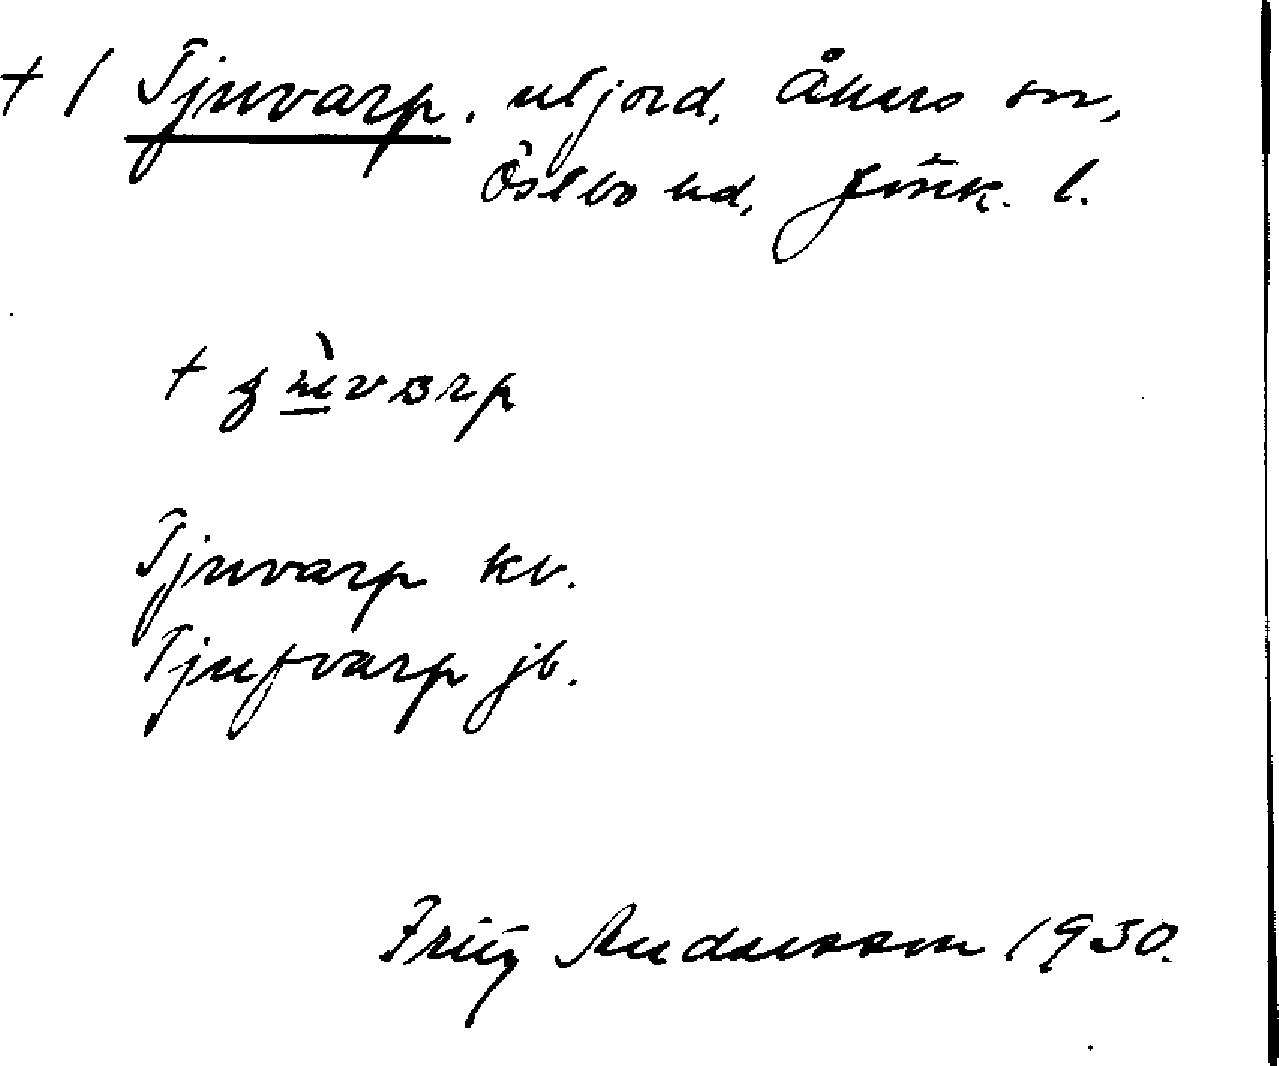 + / Tjuvarp. utjord, Åkers sn,
Östbo hd, Jönk. l.
Tjuvarp kv.
Tjufvarp jb.
Fritz Andersson 1930.